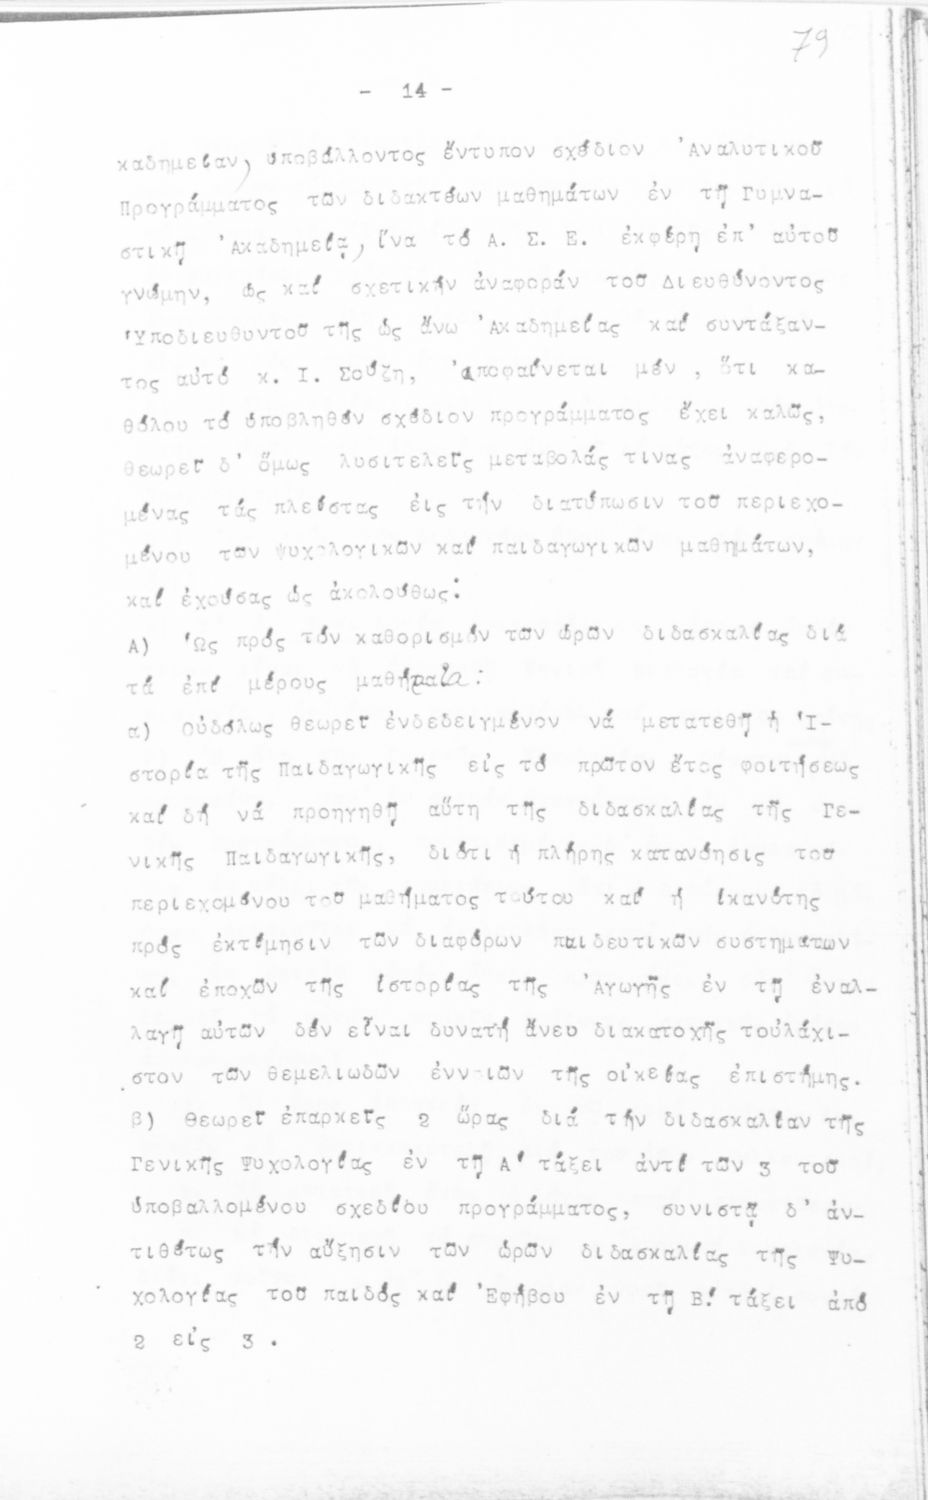 79
- 14 -
καδημείαν, ὑποβάλλοντος ἔντυπον σχέδιον Ἀναλυτικοῦ
Προγράμματος τῶν διδακτέων μαθημάτων ἐν τῇ Γυμνα-
στικῇ Ἀκαδημείᾳ, ἵνα τό Α. Σ. Ε. ἐκφέρῃ ἐπ' αὐτοῦ
γνώμην, ὡς καί σχετικήν ἀναφοράν τοῦ Διευθύνοντος
Ὑποδιευθυντοῦ τῆς ὡς ἄνω Ἀκαδημείας καί συντάξαν-
τος αὐτό κ. Ι. Σούζη, ἀποφαίνεται μέν , ὅτι κα-
θόλου τό ὑποβληθέν σχέδιον προγράμματος ἔχει καλῶς,
θεωρεῖ δ' ὅμως λυσιτελεῖς μεταβολάς τινας ἀναφερο-
μένας τάς πλείστας ἐις τήν διατύπωσιν τοῦ περιεχο-
μένου τῶν ψυχολογικῶν καί παιδαγωγικῶν μαθημάτων,
καί ἐχούσας ὡς ἀκολούθως:
Α) Ὡς πρός τόν καθορισμόν τῶν ὡρῶν διδασκαλίας διά
τά ἐπί μέρους μαθήματα:
α) Οὐδόλως θεωρεῖ ἐνδεδειγμένον νά μετατεθῇ ἡ Ἱ-
στορία τῆς Παιδαγωγικῆς εἰς τό πρῶτον ἔτος φοιτήσεως
καί δή νά προηγηθῇ αὕτη τῆς διδασκαλίας τῆς Γε-
νικῆς Παιδαγωγικῆς, διότι ἡ πλήρης κατανόησις τοῦ
περιεχομένου τοῦ μαθήματος τούτου καί ἡ ἱκανότης
πρός ἐκτίμησιν τῶν διαφόρων παιδευτικῶν συστημάτων
καί ἐποχῶν τῆς ἱστορίας τῆς Ἀγωγῆς ἐν τῇ ἐναλ-
λαγῇ αὐτῶν δέν εἶναι δυνατή ἄνευ διακατοχῆς τοὐλάχι-
στον τῶν θεμελιωδῶν ἐννοιῶν τῆς οἰκείας ἐπιστήμης.
β) Θεωρεῖ ἐπαρκεῖς 2 ὥρας διά τήν διδασκαλίαν τῆς
Γενικῆς Ψυχολογίας ἐν τῇ Α' τάξει ἀντί τῶν 3 τοῦ
ὑποβαλλομένου σχεδίου προγράμματος, συνιστᾷ δ' ἀν-
τιθέτως τήν αὔξησιν τῶν ὡρῶν διδασκαλίας τῆς Ψυ-
χολογίας τοῦ παιδός καί Ἐφήβου ἐν τῇ Β.' τάξει ἀπό
2 εἰς 3 .